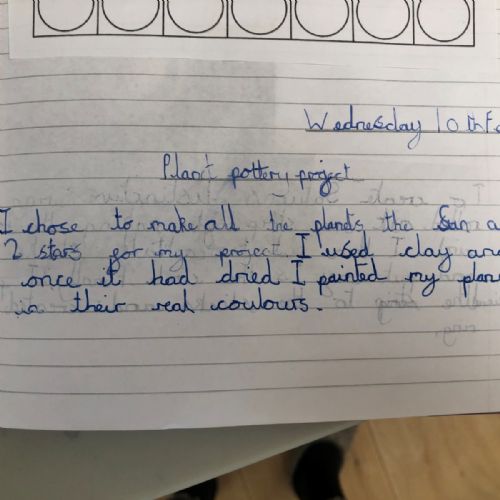 Wednesday 10th Fe
Planet pottery project
I chose to make all the plands the Sun a
2 stars for my project I used clay an
once it had dried I painted my plan
in their real coulours.